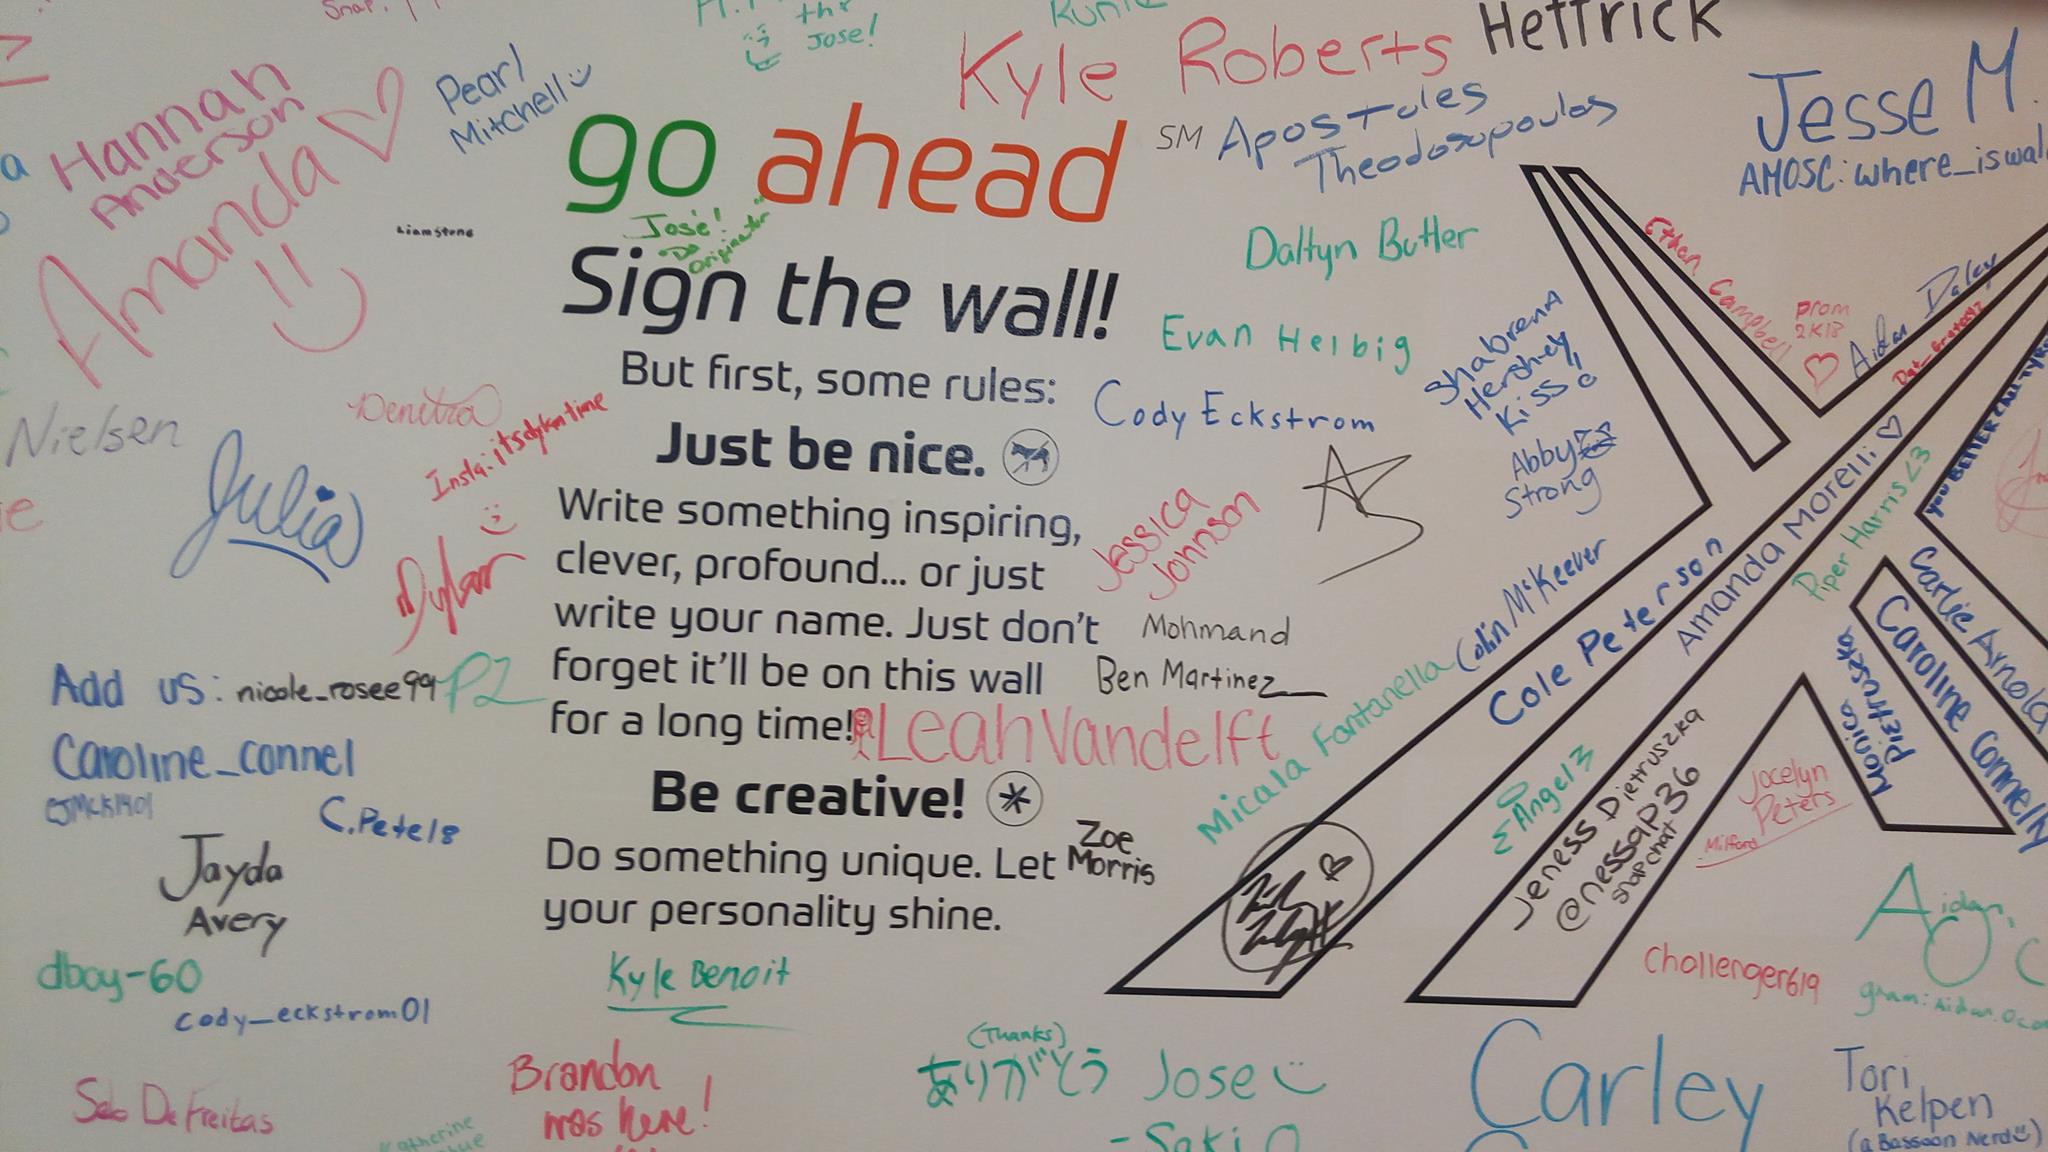 Snap.
thx
Jose!
Kyle Roberts
Hettrick
Hannah
Anderson
Amanda
Pearl
Mitchell
go ahead
José!
"Da
Originator"
SM
Apostules
Theodosopoulos
Jesse M.
AMOSC: where_iswal
Liam Stone
Sign the wall!
But first, some rules:
Daltyn Butler
Evan Helbig
Shabrena
Hershey
Kiss!
Ethan Campbell
prom
2K18
Aidan Daley
Nielsen
Denetra
Insta: itsdykmtime
Julia
Dylan
Just be nice.
Cody Eckstrom
Abby
Strong
Write something inspiring,
clever, profound... or just
write your name. Just don't
forget it'll be on this wall
for a long time!
Jessica
Johnson
Mohmand
Ben Martinez
Leah Vandelft
Micala Fontanella
Colin McKeever
Cole Peterson
Amanda Morelli
Piper Harris <3
YOU BETTER CALL TYR
Carlie Arnold
Caroline Connelly
Monica
Pietruszka
Add us: nicole_rosee99
PZ
Caroline_connel
C.Pete18
Jayda
Avery
Be creative!
Do something unique. Let
your personality shine.
Zoe
Morris
Angel 3
Jeness Pietruszka
@nessap36
snapchat
Jocelyn
Peters
Milford
dboy-60
cody_eckstrom01
Kyle Benoit
Challenger619
Aidan.
gram: Aidan.Oco
Seb DeFreitas
Brandon
was here!
(Thanks)
ありがとう Jose
- Saki
Carley
Tori
Kelpen
(a Bassoon Nerd)
Katherine